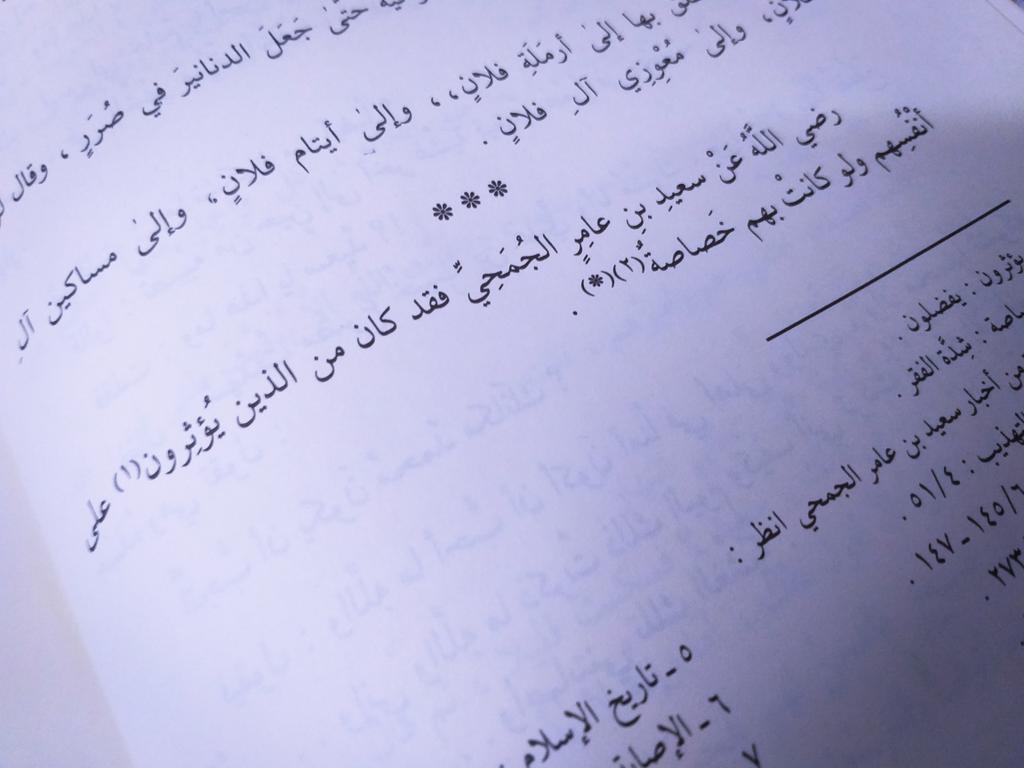 حتى جَعَلَ الدنانيرَ في صُرَرٍ ، وقال
بها إلى أرمَلَةِ فلانٍ ، ، وإلى أيتام فلانٍ ، وإلى مساكين آلِ
فلانٍ ، وإلى مُعْوِزِي آلِ فلانٍ .
***
رضي اللَّهُ عَنْ سعيدِ بنِ عامِرٍ الجُمَحِيِّ فقد كان من الذين يُؤْثِرون(١) على
أنْفُسِهم ولو كانتْ بهم خَصاصة(٢)(*) .
يؤثرون : يفضلون
شِدَّة الفقر .
من أخبار سعيد بن عامر الجمحي انظر :
التهذيب : ٥١/٤ .
١٤٥/٦ ـ ١٤٧ .
٢٧٣ .
٥ ـ تاريخ الإسلام
٦ ـ
٧